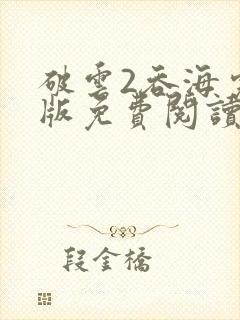 破雲2吞海
版免費閱讀
段金橋